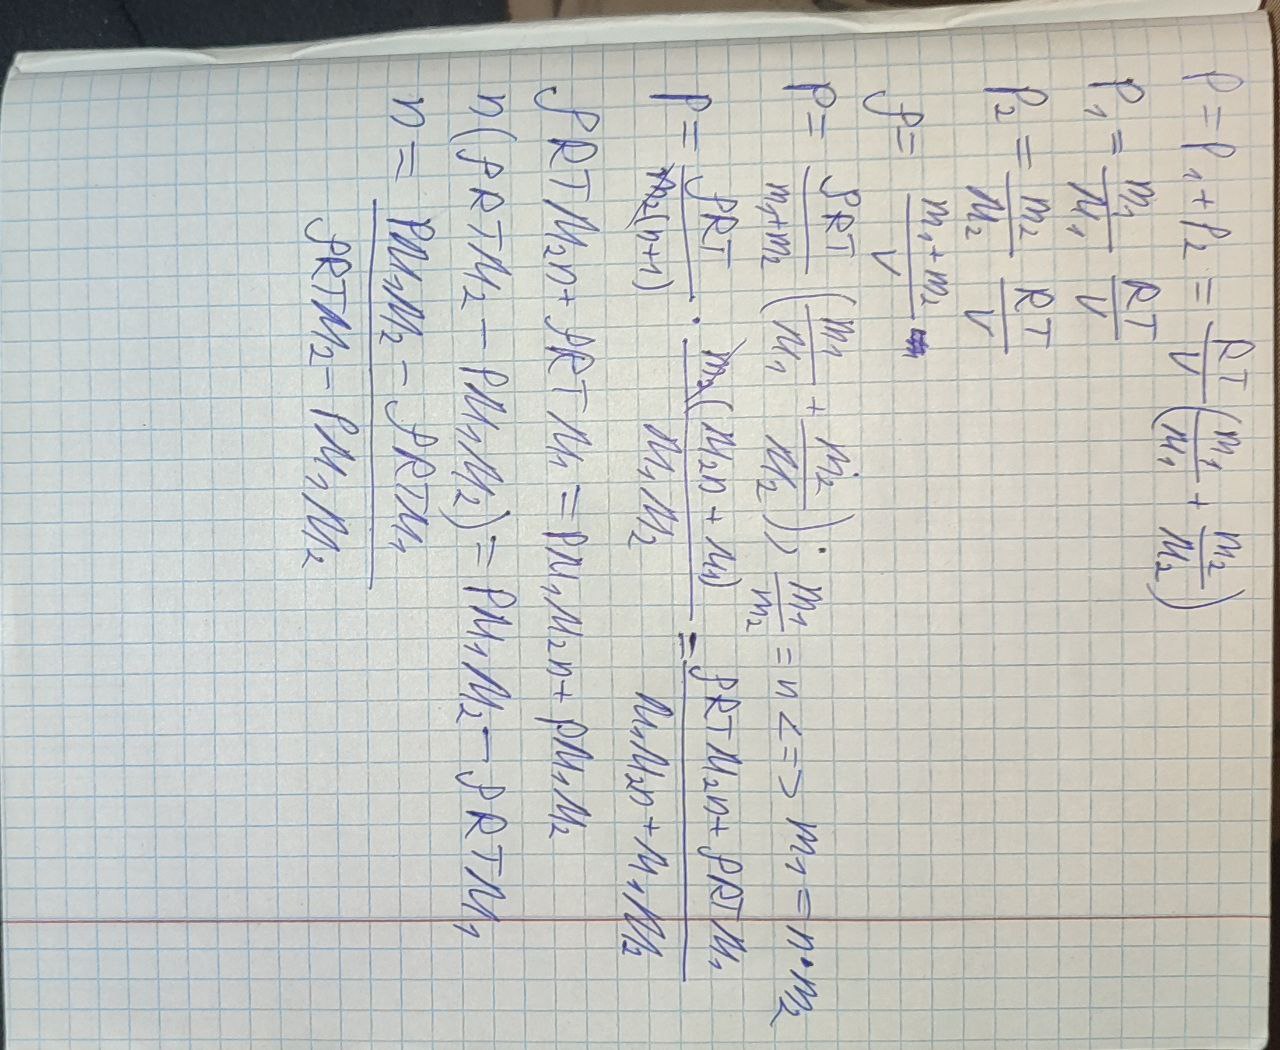 P = P₁ + P₂ = RT/V (m₁/M₁ + m₂/M₂)
P₁ = m₁/M₁ RT/V
P₂ = m₂/M₂ RT/V
ρ = (m₁ + m₂)/V
P = ρRT/(m₁ + m₂) (m₁/M₁ + m₂/M₂); m₁/m₂ = n <=> m₁ = n · m₂
P = ρRT/(m₂(n+1)) · m₂(M₂n + M₁)/(M₁M₂) = (ρRTM₂n + ρRTM₁)/(M₁M₂n + M₁M₂)
ρRTM₂n + ρRTM₁ = PM₁M₂n + PM₁M₂
n(ρRTM₂ − PM₁M₂) = PM₁M₂ − ρRTM₁
n = (PM₁M₂ − ρRTM₁)/(ρRTM₂ − PM₁M₂)